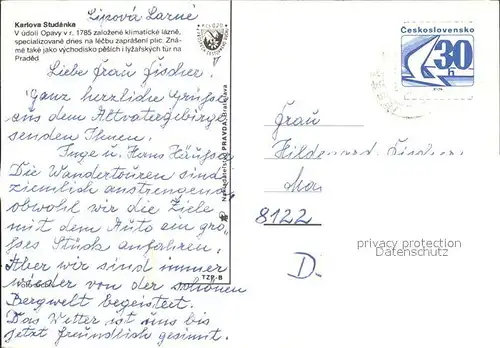 Lipová Lázně
Karlova Studánka
V údolí Opavy v r. 1785 založené klimatické lázně,
specializované dnes na léčbu zaprášení plic. Zná-
mé také jako východisko pěších i lyžařských túr na
Praděd
Liebe Frau Fischer.
Ganz herrliche Grüße
aus dem Altvatergebirge
senden Ihnen.
Inge u. Hans
Die Wandertouren sind
ziemlich anstrengend
obwohl wir die Ziele
mit dem Auto ein gro-
sses Stück anfahren.
Aber wir sind immer
wieder von der schönen
Bergwelt begeistert.
Das Wetter ist uns bis
jetzt freundlich gesinnt.
PRAVDA, Bratislava
TZP-B
Československo
30 h
Frau
Hildegard Fischer
8122
D.
privacy protection
Datenschutz